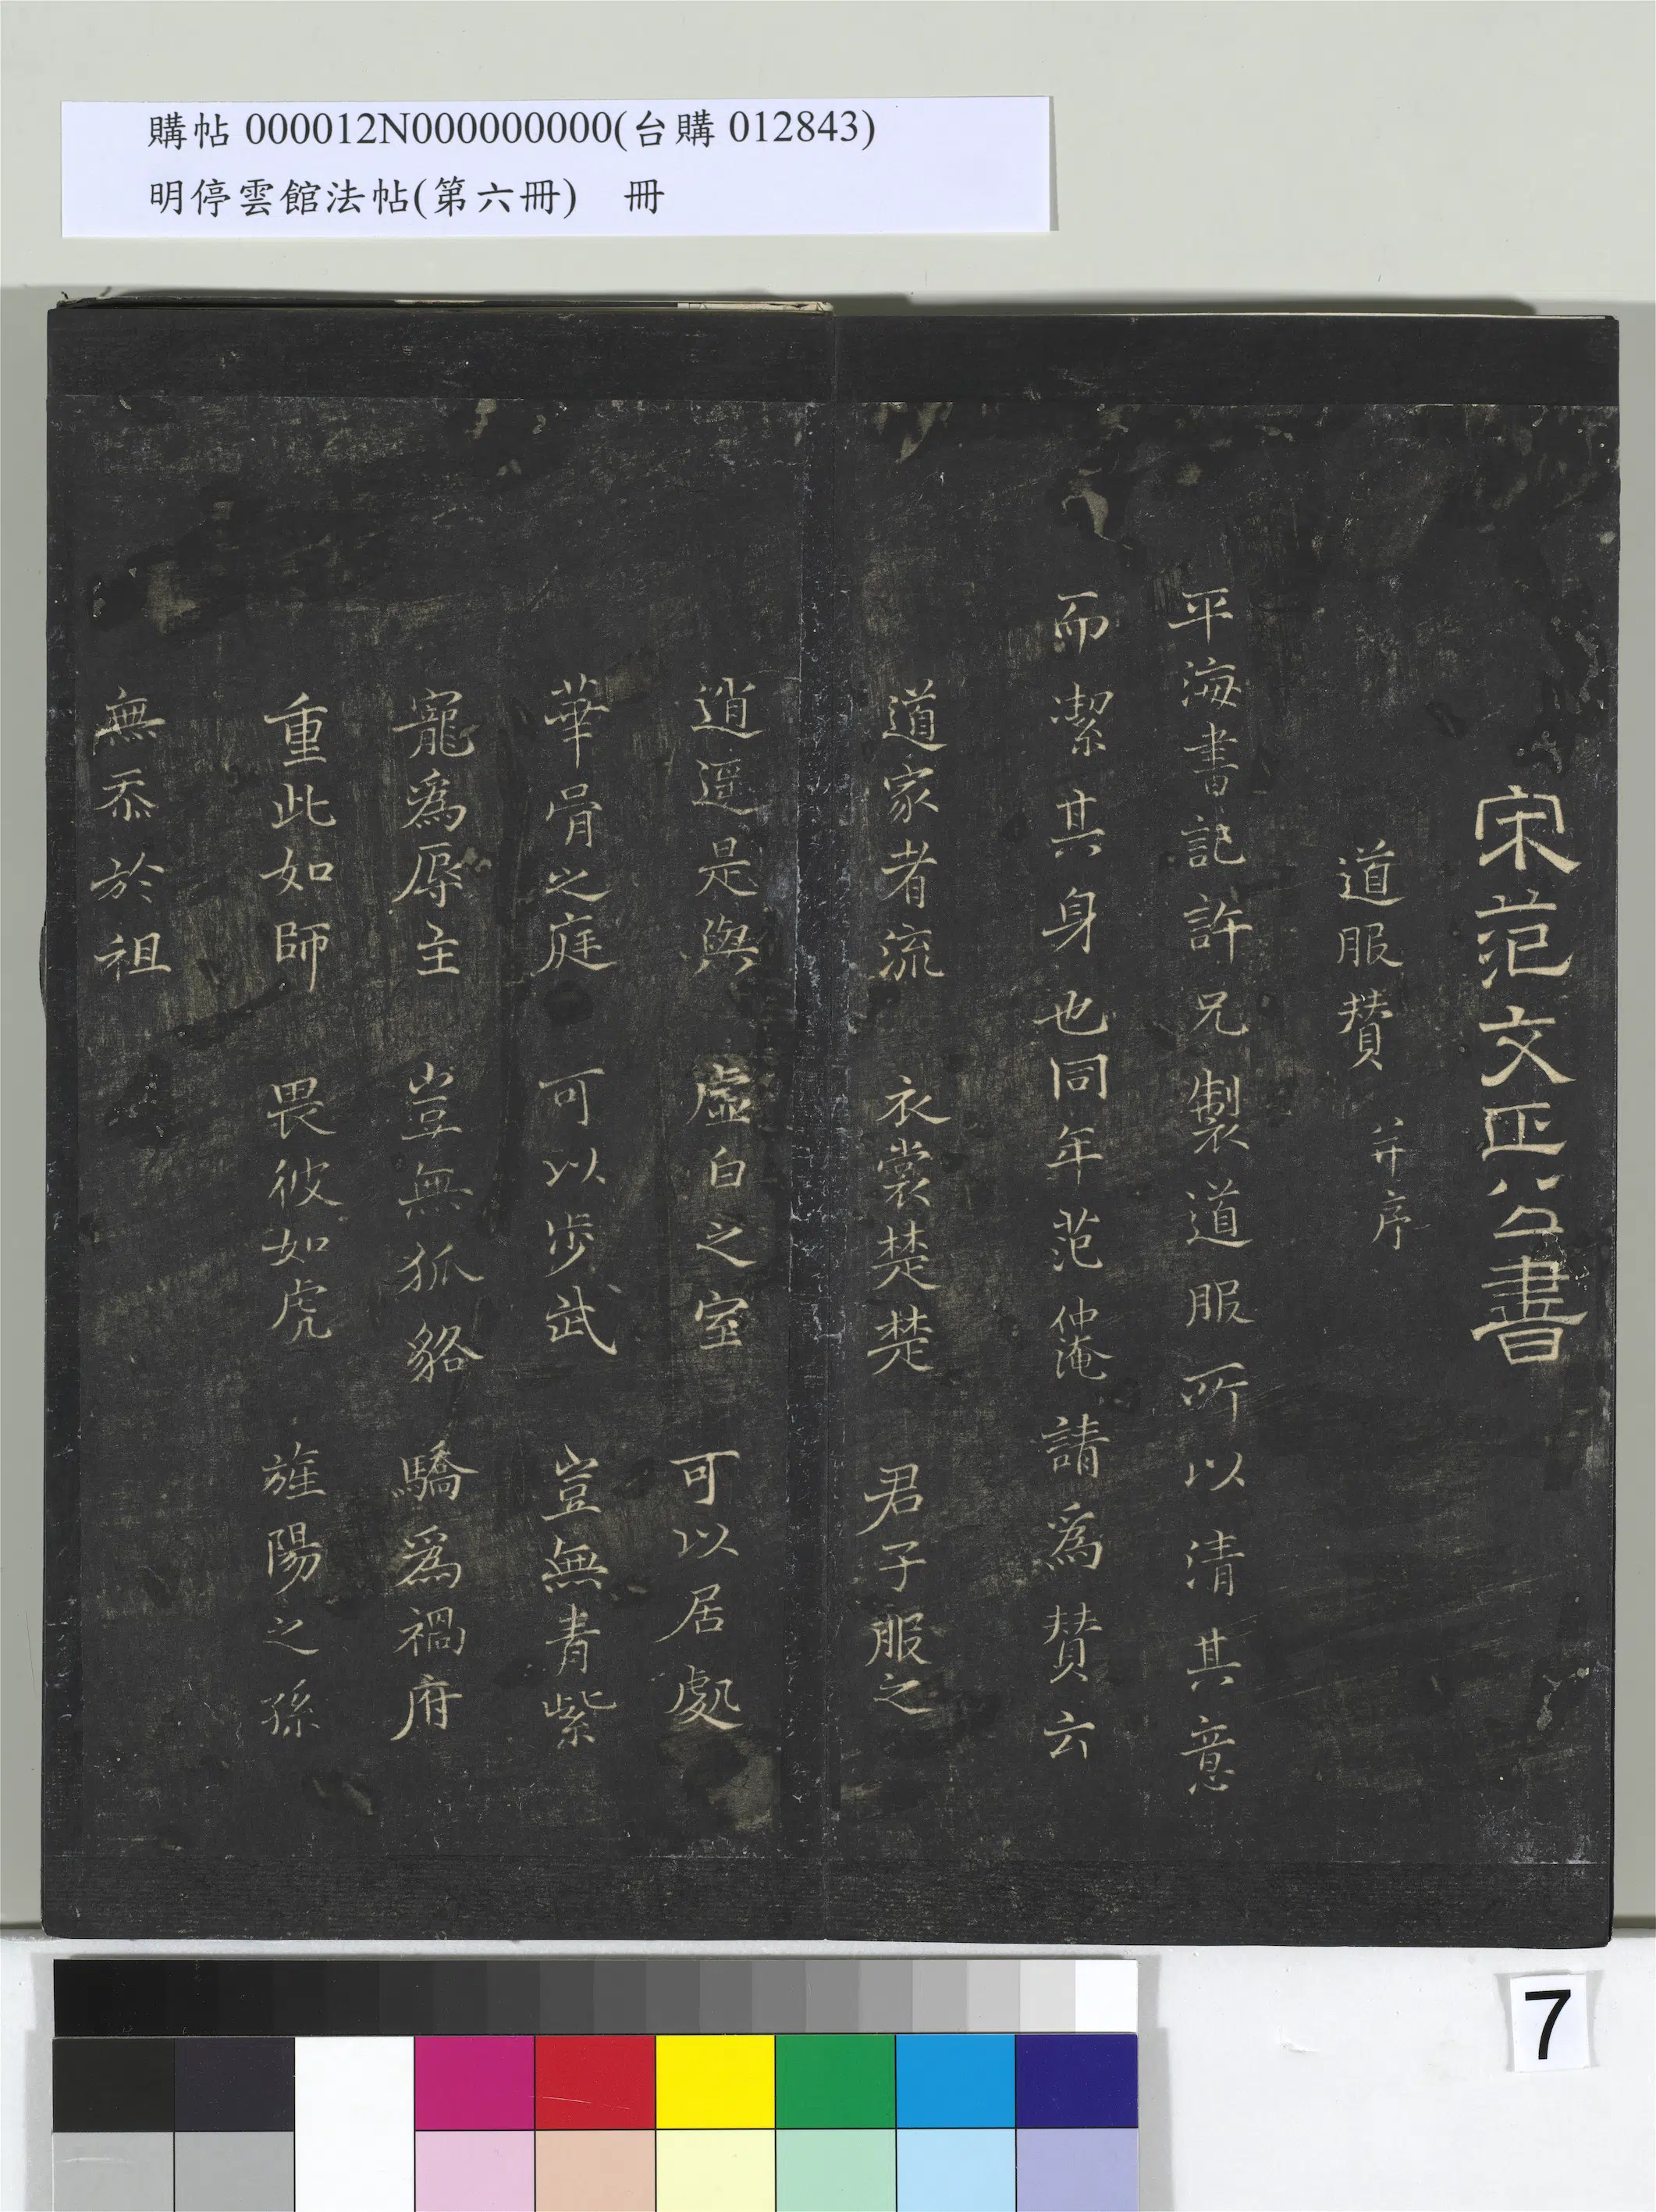 購帖 000012N000000000(台購 012843)
明停雲館法帖(第六冊) 冊
宋范文正公書
道服賛 并序
平海書記許兄製道服所以清其意
而潔其身也同年范仲淹請爲賛云
道家者流 衣裳楚楚 君子服之
逍遥是與 虛白之室 可以居處
華胥之庭 可以步武 豈無青紫
寵爲辱主 豈無狐貉 驕爲禍府
重此如師 畏彼如虎 旌陽之孫
無忝於祖
7